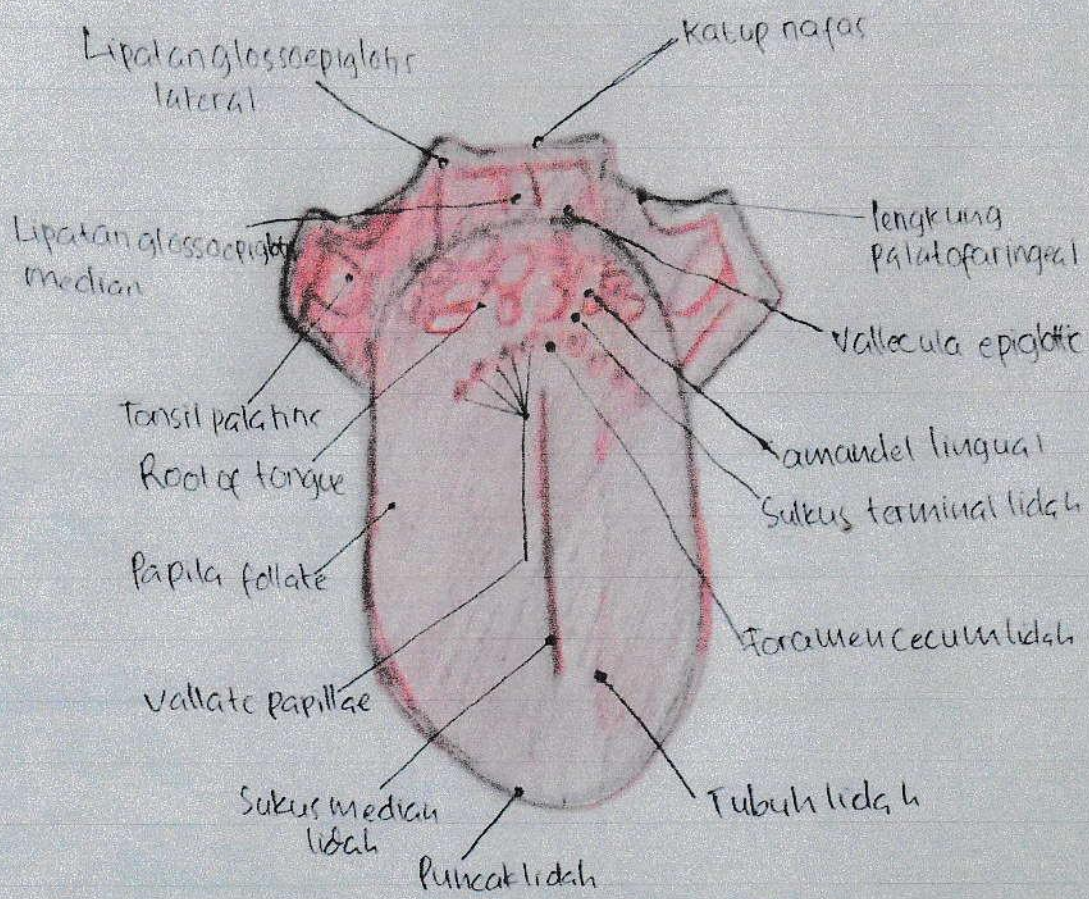 Lipatan glossoepiglotis
lateral
Katup nafas
Lipatan glossoepiglotis
median
lengkung
palatofaringeal
Vallecula epiglottic
Tonsil palatine
Root of tongue
amandel lingual
Sulkus terminal lidah
Papila follate
Foramen cecum lidah
Vallate papillae
Sukus median
lidah
Tubuh lidah
Puncak lidah